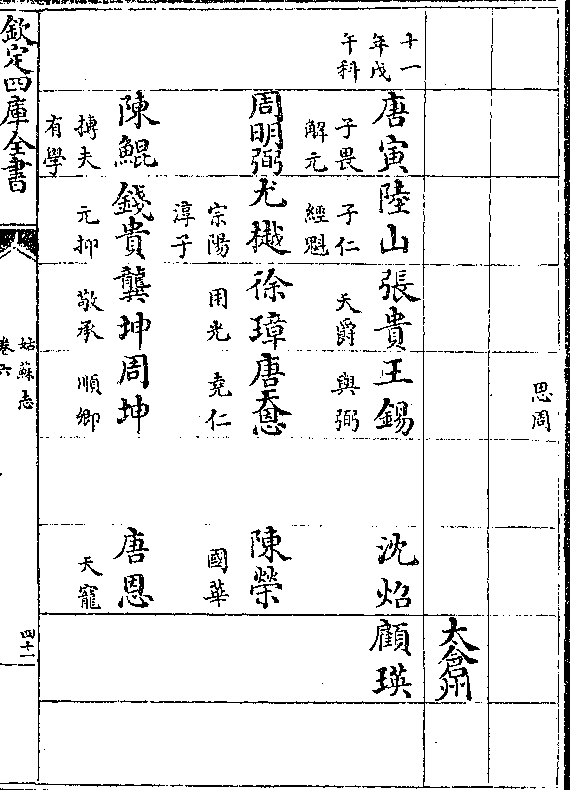 思周
太倉州
十一
年戊
午科
唐寅 陸山 張貴 王錫 沈炤 顧瑛
子畏 子仁 天爵 與弼
解元 經魁
周明弼 尤樾 徐璋 唐天恩 陳榮
宗陽 用光 堯仁 國華
淳子
陳鯤 錢貴 龔坤 周坤 唐恩
摶夫 元抑 敬承 順卿 天寵
有學
欽定四庫全書
姑蘇志
卷六
四十一